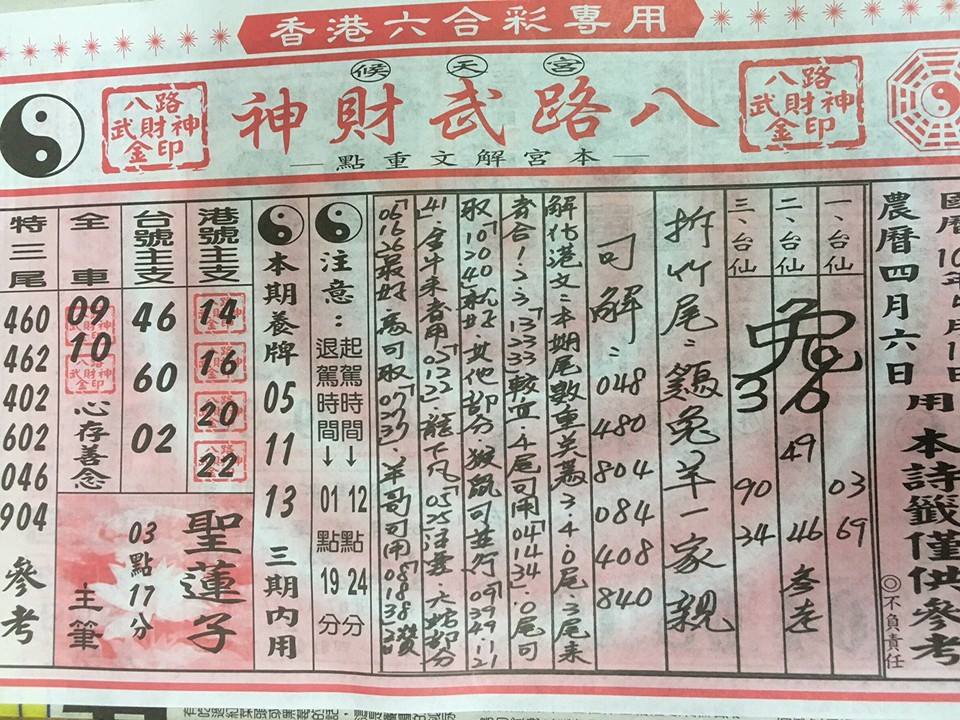 香港六合彩專用
候天宮
八路武財神
八路
武財神
金印
八路
武財神
金印
本宮解文重點
農曆四月六日 用
本詩籤僅供參考
◎不負責任
一、台仙
03
69
二、台仙
兔
36
49
46
參走
三、台仙
90
34
拆竹尾：鷄兔羊一家親
可解：048 480 804 084 408 840
解估港文：本期尾數重
3、4、0尾，3尾來
者合1、2、3「13 23 33」較宜，4尾可用「04 14 34」，0尾可
取「10 20 40」
其他部分，猴鼠可並行「09 39 49、11 21
41」
金牛來者用「05、12、22」，龍下凡
05 16 26最好，馬可取「07 27 37」，羊哥可用「08 18 38
注意：
起駕時間→12點24分
退駕時間→01點19分
本期養牌 05 11 13 三期內用
港號主支
14
16
20
22
台號主支
46
60
02
全車
09
10
心存善念
特三尾
460
462
402
602
046
904
參考
聖蓮子
03點17分
主筆